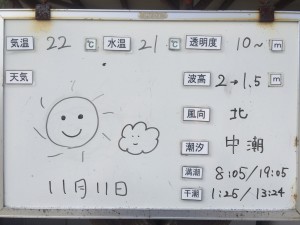 気温 22 ℃ 水温 21 ℃ 透明度 10~ m
天気
波高 2→1.5 m
風向 北
潮汐 中潮
満潮 8:05/19:05
干潮 1:25/13:24
11月11日